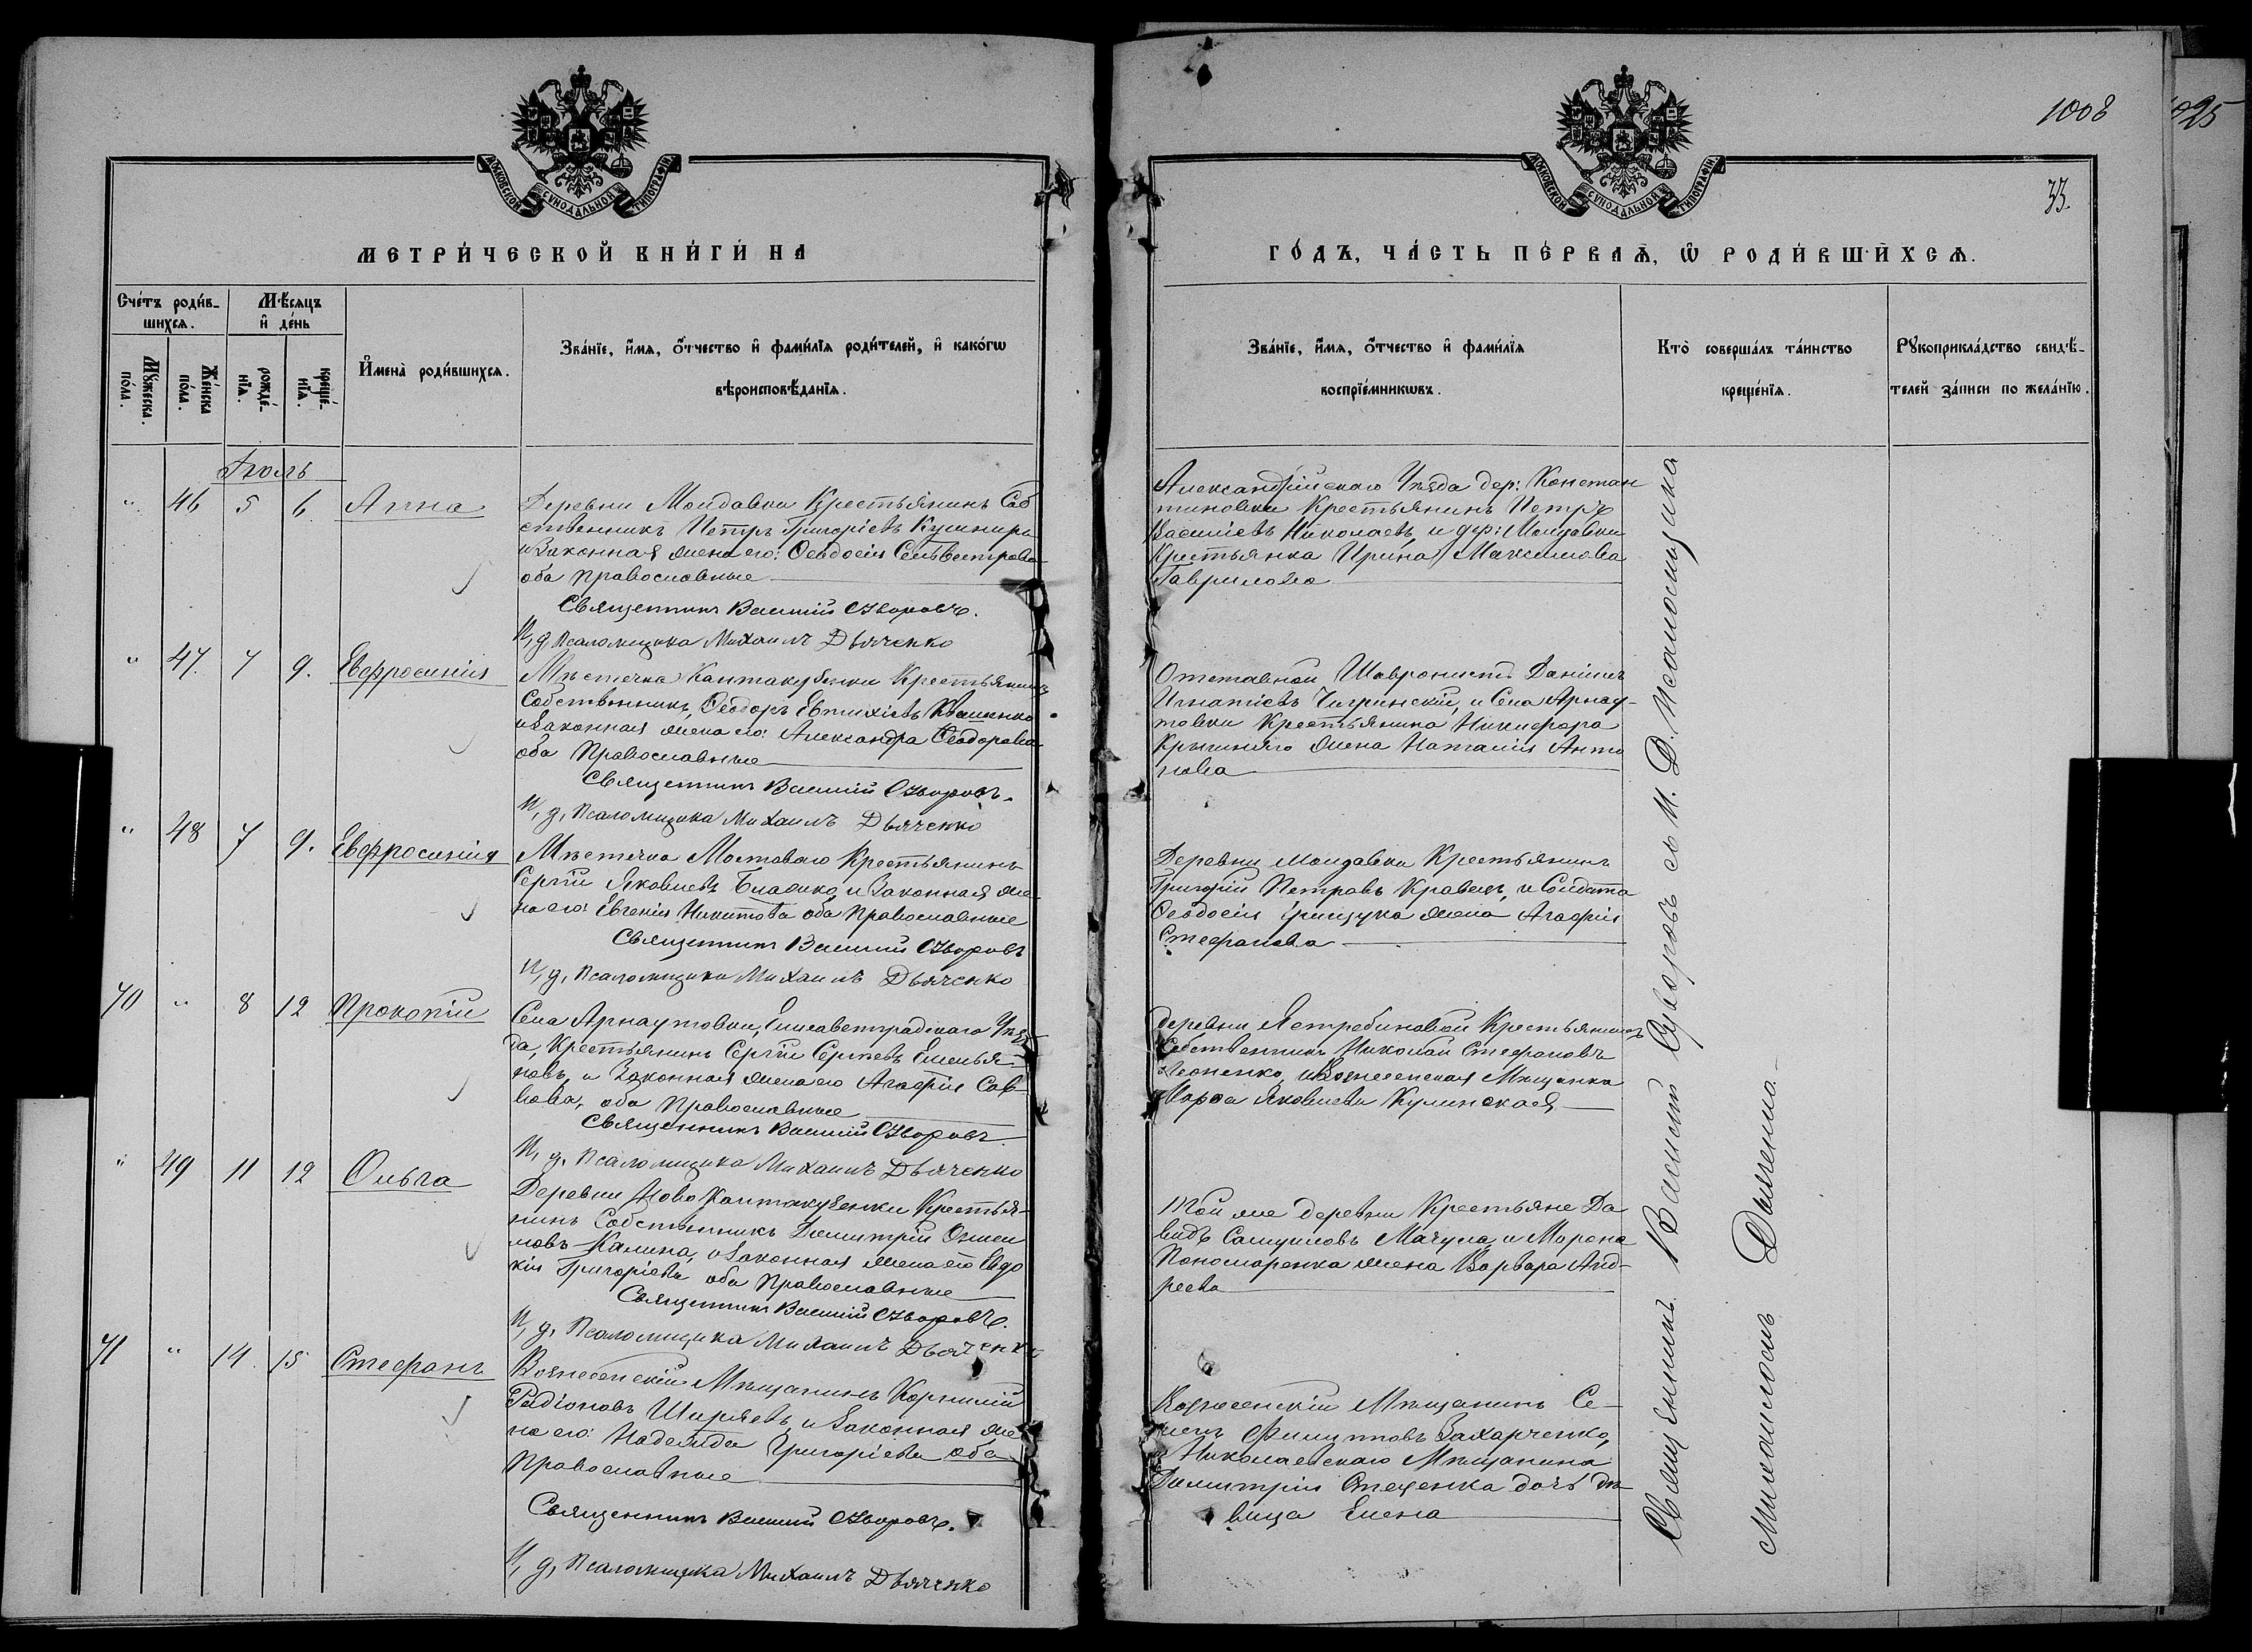 1008
025
33.
МОСКОВСКОЙ СѴНОДАЛЬНОЙ ТИПОГРАФІИ
МОСКОВСКОЙ СѴНОДАЛЬНОЙ ТИПОГРАФІИ
МЕТРИ́ЧЕСКОЙ КНИ́ГИ НА
ГО́ДЪ, ЧА́СТЬ ПЕ́РВАѦ, Ѡ РОДИ́ВШИХСѦ.
Сче́тъ роди́в-
шихсѧ.
Мѣ́сяцъ
и҆ де́нь
Мꙋ́жеска
по́ла.
Же́нска
по́ла.
рожде́-
нїѧ.
креще́-
нїѧ.
И҆мена̀ роди́вшихсѧ.
Зва́нїе, и҆́мѧ, ѻ҆́тчество и҆ фами́лїѧ роди́телей, и҆ како́гѡ
вѣроисповѣ́данїѧ.
Зва́нїе, и҆́мѧ, ѻ҆́тчество и҆ фами́лїѧ
воспрїе́мникѡвъ.
Кто̀ соверша́лъ та́инство
креще́нїѧ.
Рꙋкоприкла́дство свидѣ́-
телей за́писи по жела́нїю.
Іюль
" 46 5 6 Анна
Деревни Молдавки Крестьянинъ Соб
ственникъ Петръ Григоріевъ Кушниръ
и Законная жена его: Ѳеодосія Сельвестрова
оба православные
Священникъ Василій Суворовъ.
И, д, Псаломщика Михаилъ Дьяченко
Александрійскаго Уѣзда дер: Констан
тиновки Крестьянинъ Петръ
Василіевъ Николаевъ, и дер: Молдавки
Крестьянка Ирина Максимова
Гаврилова
" 47. 7 9. Евфросинія
Мѣстечка Кантакузенки Крестьянинъ
Собственникъ, Ѳеодоръ Евтихіевъ Квашенко
и Законная жена его: Александра Ѳеодорова
оба Православные
Священникъ Василій Суворовъ.
И, д, Псаломщика Михаилъ Дьяченко
Отставной Даніилъ
Игнатіевъ Чигринскій, и Села Арнау-
товки Крестьянина Никифора
жена Наталія Анто
нова
" 48 7 9. Евфросинія
Мѣстечка Мостоваго Крестьянинъ
Сергій Яковлевъ и Законная же
на его: Евгенія Никитова оба Православные
Священникъ Василій Суворовъ
И, д, Псаломщика Михаилъ Дьяченко
Деревни Молдавки Крестьянинъ
Григорій Петровъ Кравецъ, и Солдата
Ѳеодосія Грищука жена Агафія
Стефанова
70 " 8 12 Прокопій
Села Арнаутовки, Елисаветградскаго Уѣз
да, Крестьянинъ Сергій Сергіевъ Емелья-
новъ, и Законная жена его Агафія Сав-
вова, оба Православные
Священникъ Василій Суворовъ
И, д, Псаломщика Михаилъ Дьяченко
Деревни Ястребиновой Крестьянинъ
Собственникъ Николай Стефановъ
Леоненко, и Вознесенская Мѣщанка
Марѳа Яковлева Кулинская
" 49 11 12 Ольга
Деревни Ново Кантакузенки Крестья-
нинъ Собственникъ Димитрій
Калина, и Законная жена его Евдо
кія Григоріева оба Православные
Священникъ Василій Суворовъ.
И, д, Псаломщика Михаилъ Дьяченко
Той же деревни Крестьяне Да
видъ Самуиловъ Мачула, и Мирона
Пономаренка жена Варвара Анд-
реева
71 " 14. 15 Стефанъ
Вознесенскій Мѣщанинъ Корнилій
Радіоновъ Ширяевъ, и Законная же
на его: Надежда Григоріева оба
Православные
Священникъ Василій Суворовъ.
И, д, Псаломщика Михаилъ Дьяченко
Вознесенскій Мѣщанинъ Се-
менъ Филиповъ Захарченко,
и Николаевскаго Мѣщанина
Димитрія Стеценка дочь дѣ-
вица Елена
Священникъ Василій Суворовъ съ И. Д. Псаломщика
Михаиломъ Дьяченко.